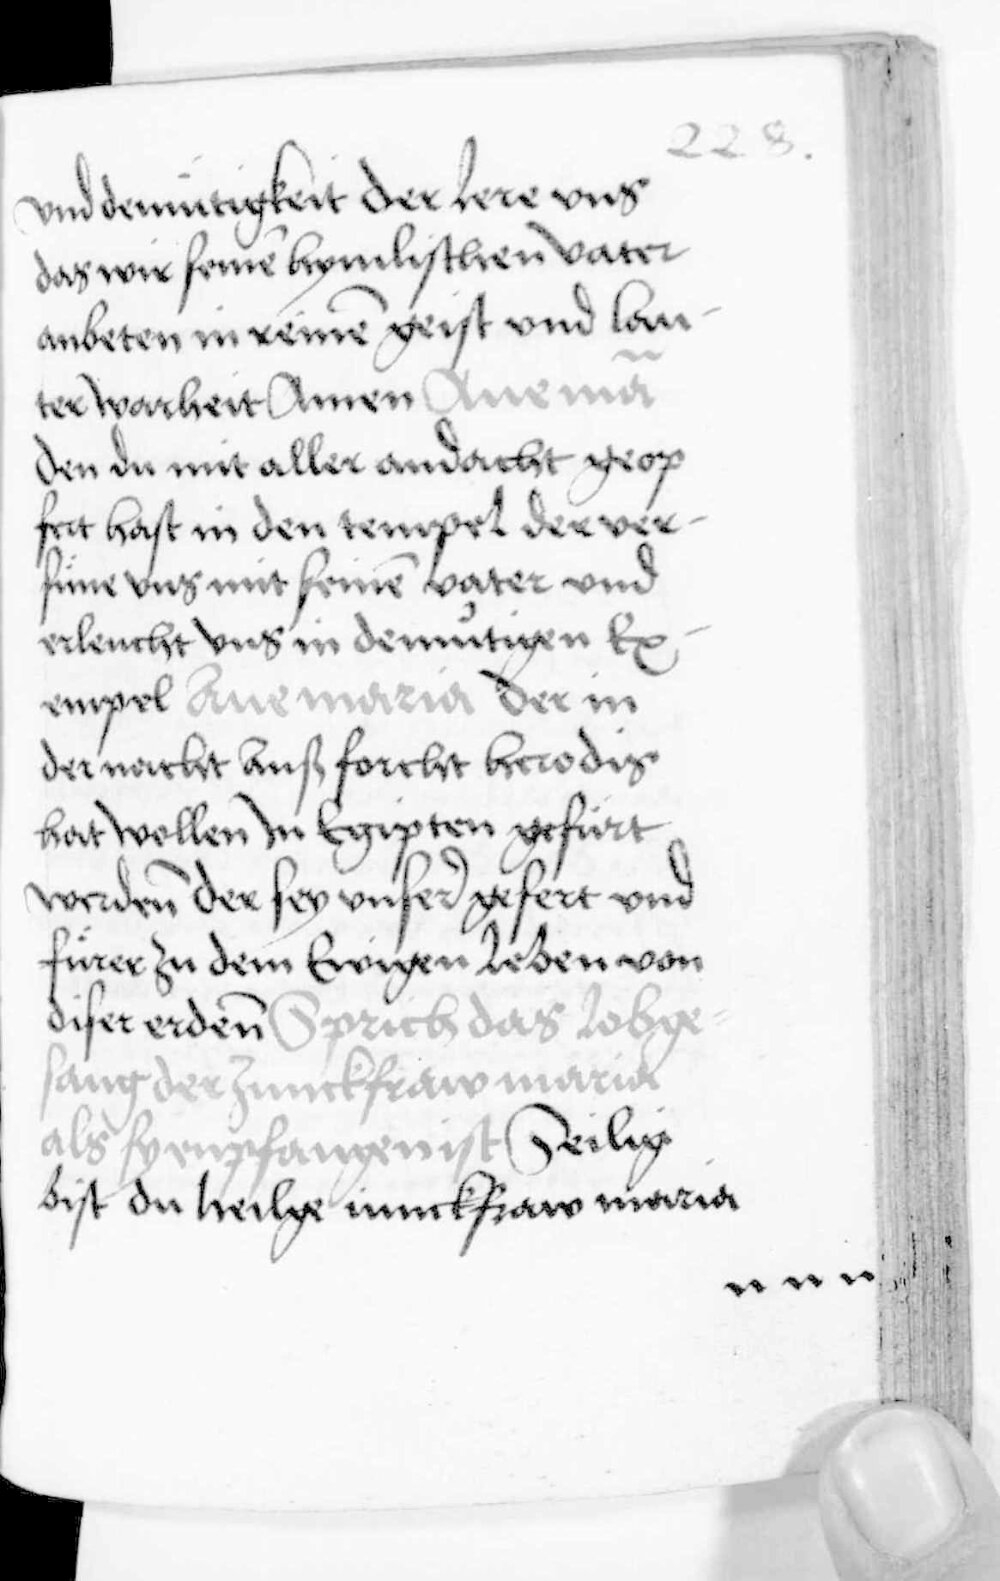 228.
vnd demütigkeit der lere vns
das wir seinē hymlischen vater
anbeten in reinē geist vnd lau-
ter warheit Amen Aue mā
den du mit aller andacht geop
fert hast in den tempel der ver-
süne vns mit seinē vater vnd
erleucht vns in demütigen Ex-
empel Aue maria der in
der nacht auß forcht herodis
hat wollen in Egipten gefürt
werdenn̄ der sey vnser gefert vnd
fürer zu dem Ewigen leben von
diser erdenn̄ Sprich das lobge-
sang der Junckfraw maria
als sy enpfangen ist Seilig
bist du heilge iunckfraw maria